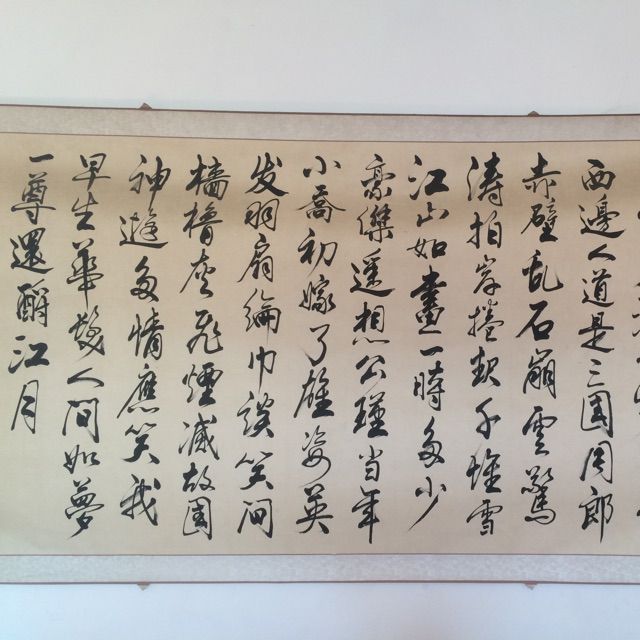 西邊人道是三国周郎
赤壁乱石崩雲驚
涛拍岸捲起千堆雪
江山如畫一時多少
豪傑遥想公瑾当年
小喬初嫁了雄姿英
发羽扇綸巾談笑间
檣櫓灰飛煙滅故國
神遊多情應笑我
早生華髮人间如夢
一尊還酹江月